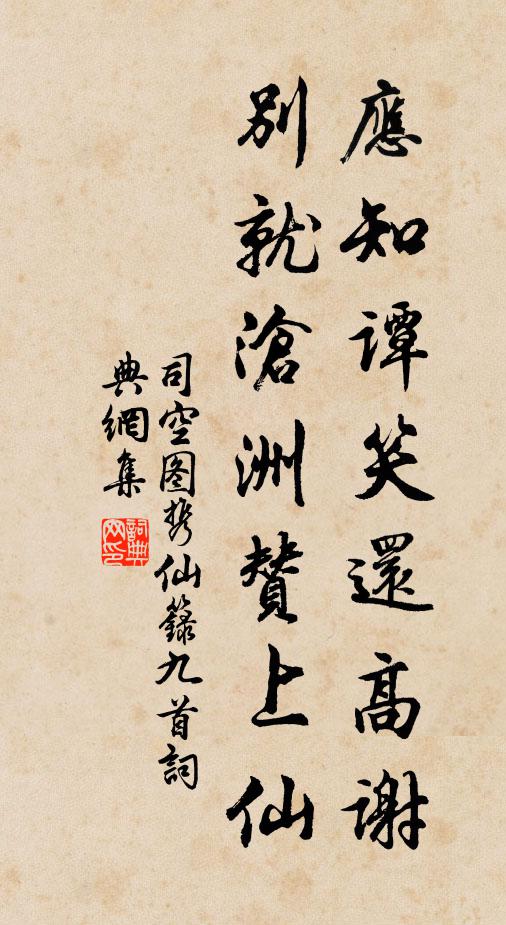 應知譚笑還高謝
別就滄洲贊上仙
司空图携仙籙九首詞
典網集
詞典網印